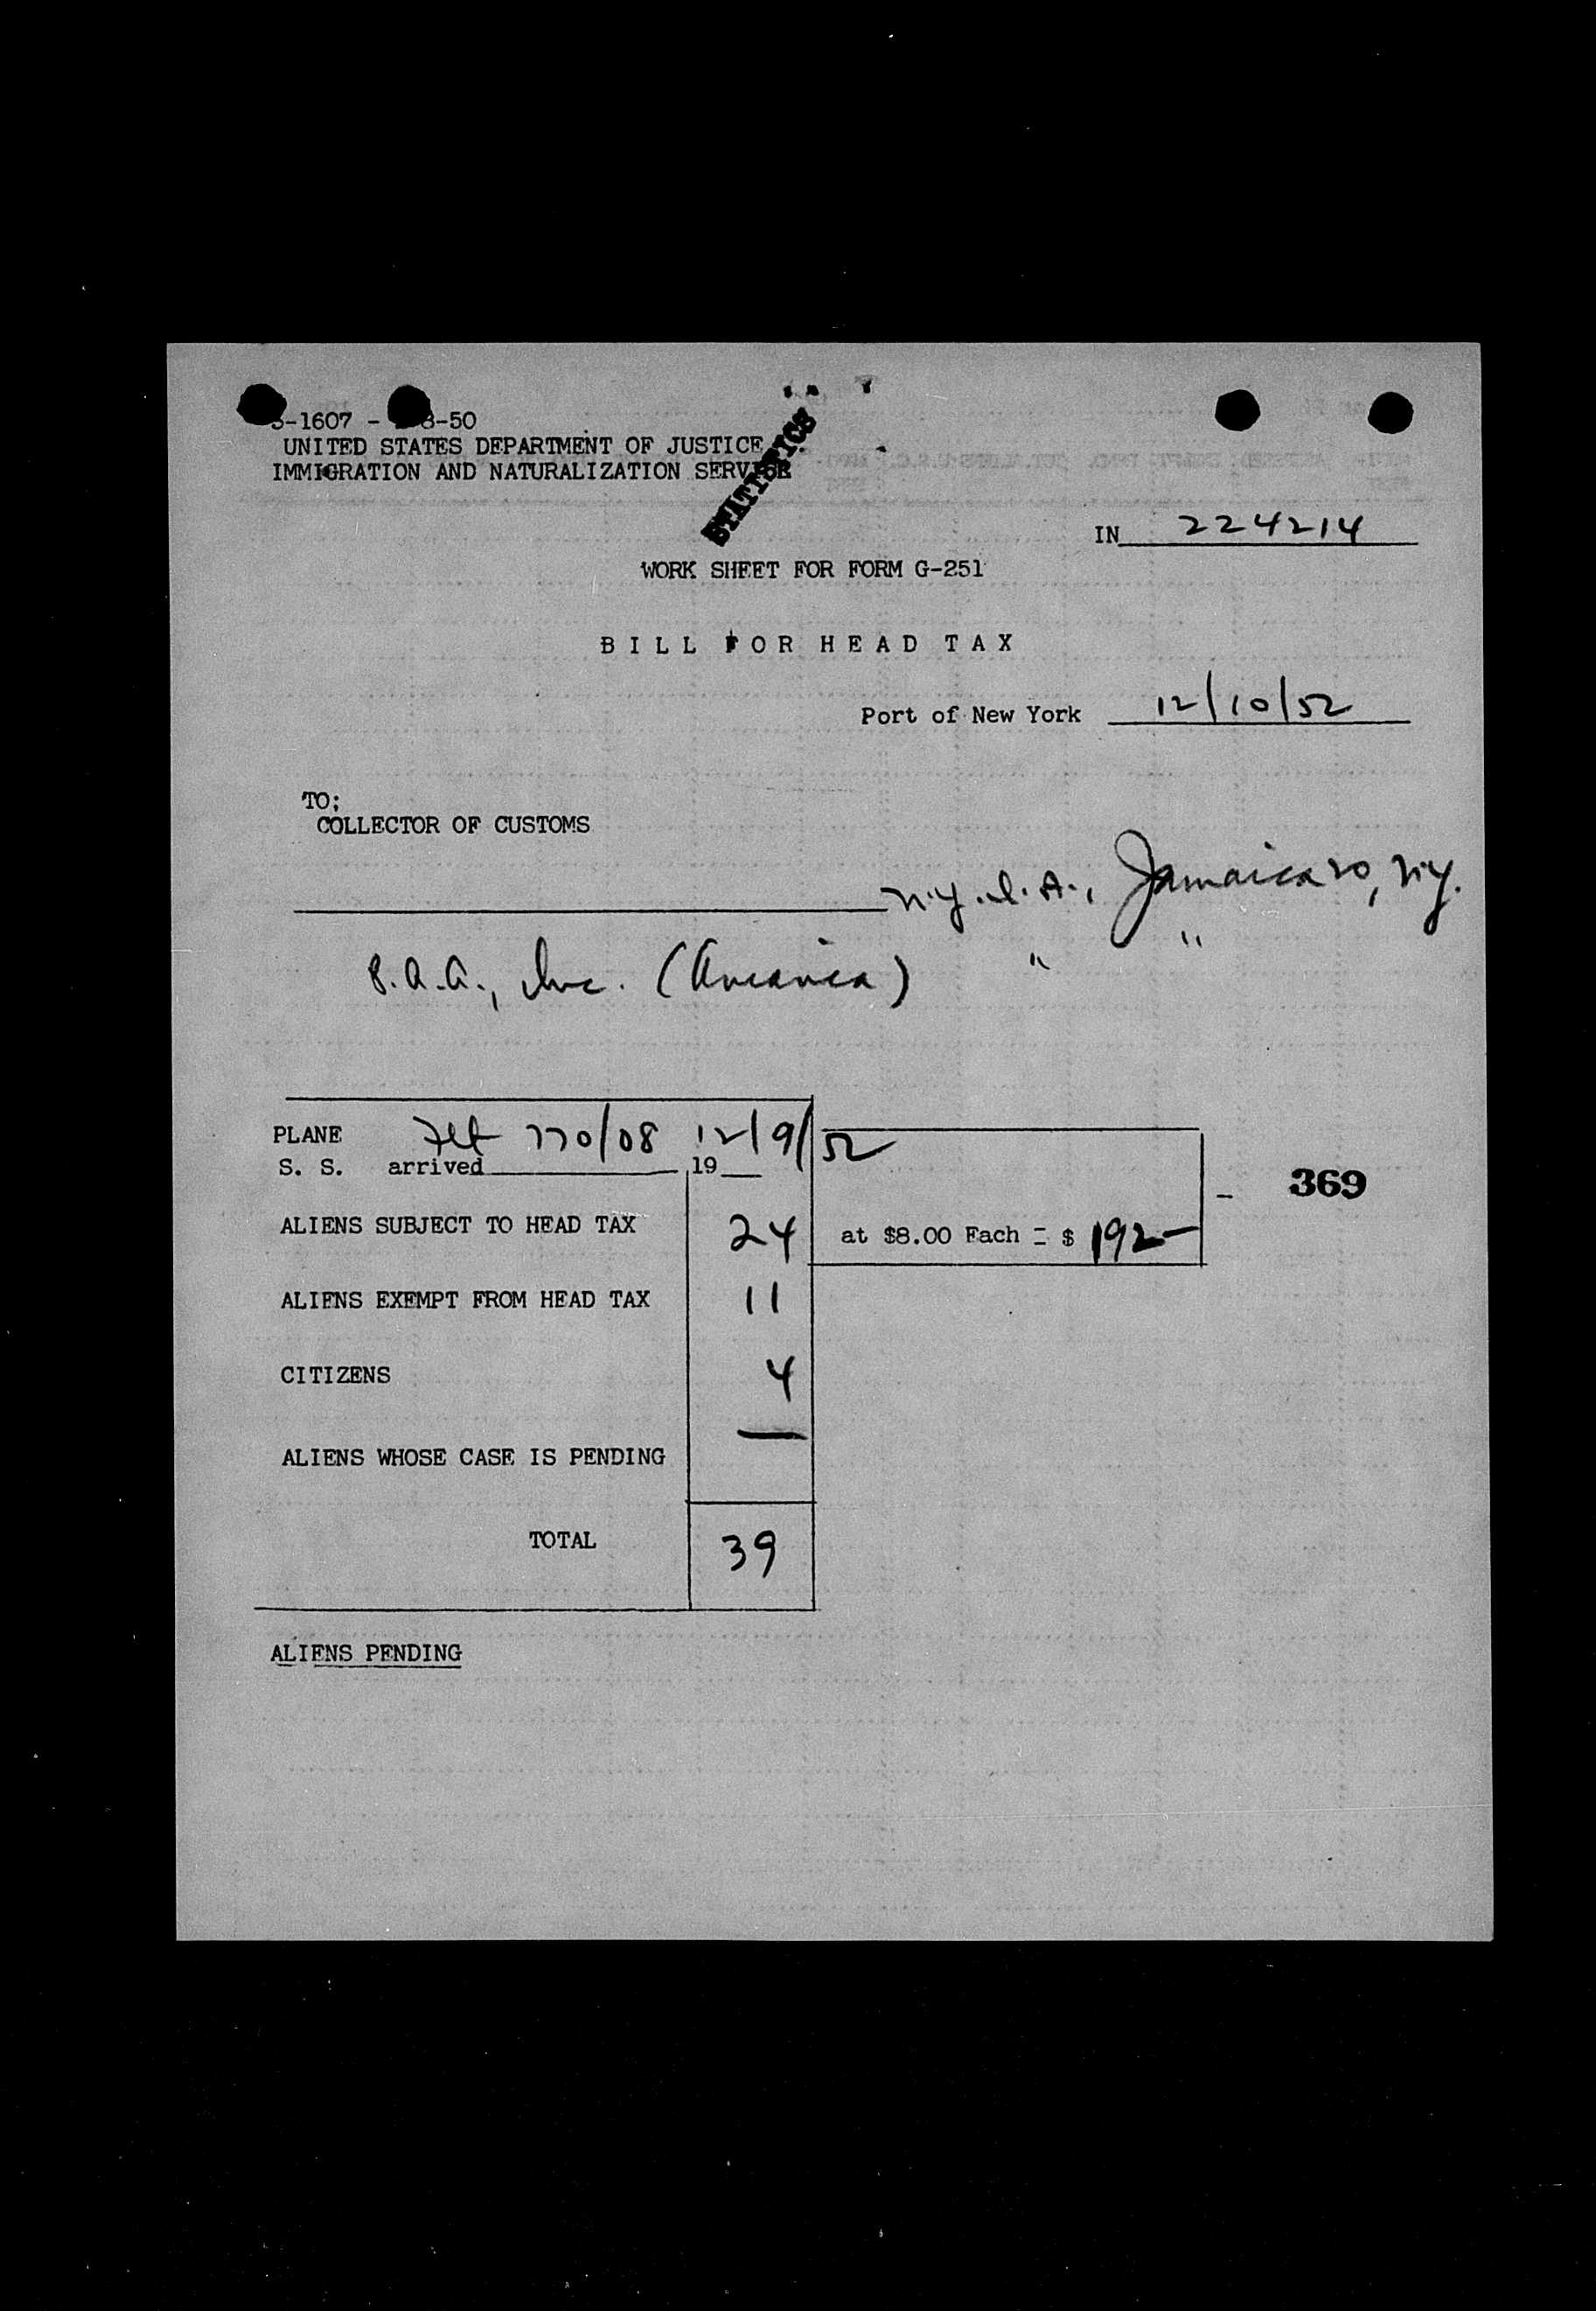 -1607 - 8-50
UNITED STATES DEPARTMENT OF JUSTICE
IMMIGRATION AND NATURALIZATION SERVICE
STATISTICS
IN 224214
WORK SHEET FOR FORM G-251
BILL FOR HEAD TAX
Port of New York 12/10/52
TO;
COLLECTOR OF CUSTOMS
N.Y.I.A., Jamaica 20, N.Y.
Inc. " "
PLANE Flt 770/08 12/9/52
S. S. arrived 19
369
ALIENS SUBJECT TO HEAD TAX 24 at $8.00 Each = $ 192-
ALIENS EXEMPT FROM HEAD TAX 11
CITIZENS 4
ALIENS WHOSE CASE IS PENDING —
TOTAL 39
ALIENS PENDING